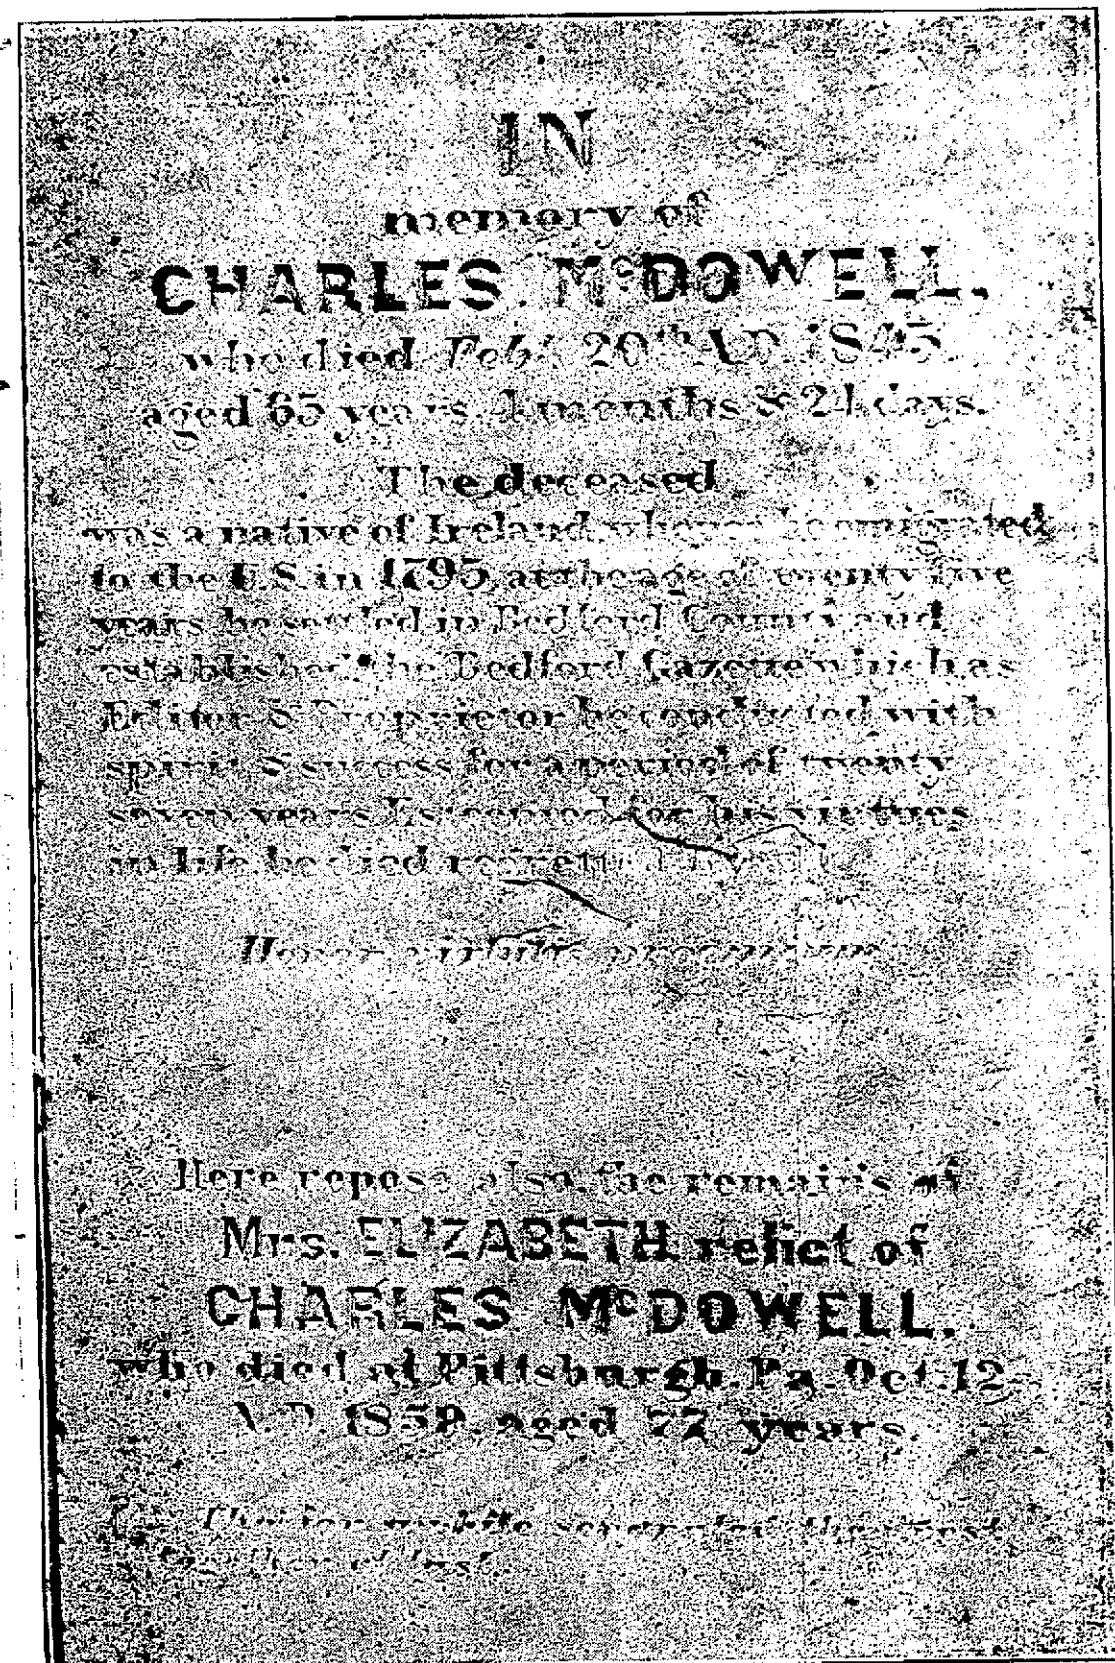 IN
memory of
CHARLES McDOWELL.
who died Feby. 20th A.D. 1845
aged 65 years, 4 months & 24 days.
The deceased
was a native of Ireland whence he emigrated
to the U.S. in 1795, at the age of twenty five
years he settled in Bedford County and
established the Bedford Gazette which as
Editor & Proprietor he conducted with
spirit & success for a period of twenty
seven years. Esteemed for his virtues
in life he died regretted
Honor virtutis præmium
Here repose also, the remains of
Mrs. ELIZABETH, relict of
CHARLES McDOWELL.
who died at Pittsburgh, Pa. Oct. 12
A.D. 1859, aged 77 years.
Tho' for awhile separated they rest
together at last